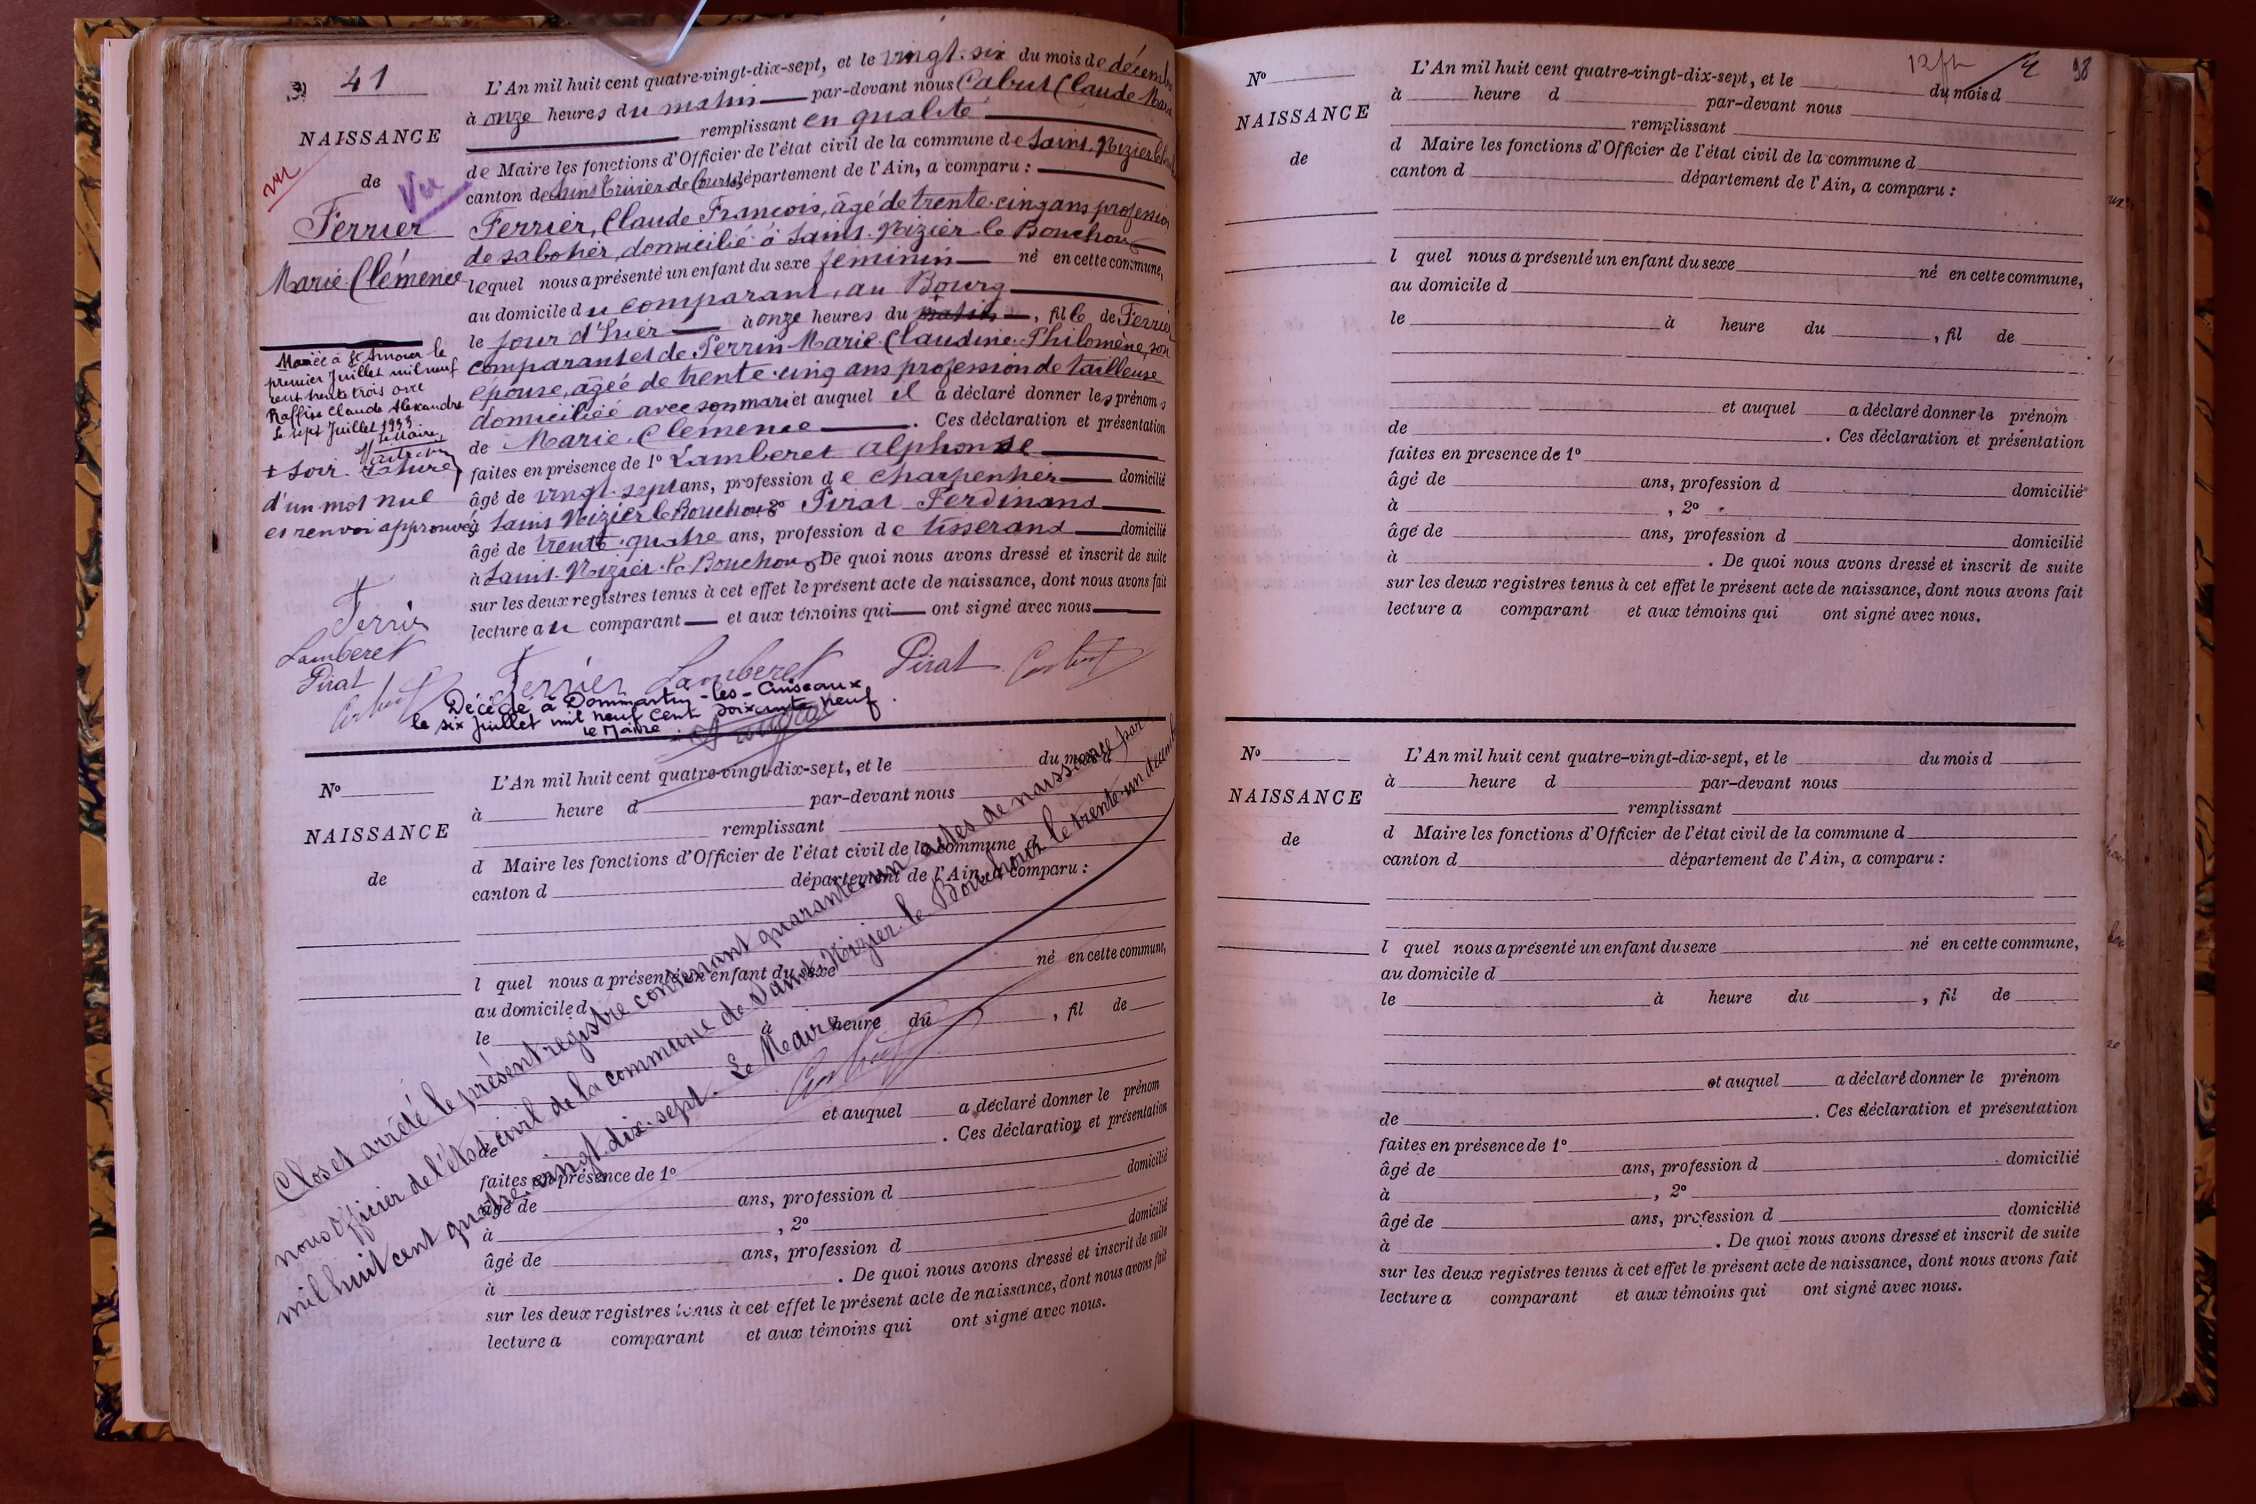 41
NAISSANCE
de
vu
Vu
Ferrier
Marie Clémence
L'An mil huit cent quatre-vingt-dix-sept, et le vingt-six du mois de décembre
à onze heures du matin par-devant nous Cabut Claude Marie
remplissant en qualité
de Maire les fonctions d'Officier de l'état civil de la commune de Saint-Nizier le
canton de Saint Trivier de Courtes département de l'Ain, a comparu :
Ferrier, Claude François, âgé de trente-cinq ans profession
de sabotier, domicilié à Saint-Nizier-le Bouchoux
lequel nous a présenté un enfant du sexe féminin né en cette commune,
au domicile du comparant, au Bourg
le jour d'hier à onze heures du matin +, fille de Ferrier
comparant et de Perrin Marie-Claudine-Philomène, son
épouse, âgée de trente-cinq ans profession de tailleuse
domiciliée avec son mari et auquel il a déclaré donner les prénoms
de Marie-Clémence. Ces déclaration et présentation
faites en présence de 1º Lamberet Alphonse
âgé de vingt-sept ans, profession de charpentier domicilié
à Saint Nizier le Bouchoux 2º Pirat Ferdinand
âgé de trente-quatre ans, profession de tisserand domicilié
à Saint-Nizier-le Bouchoux. De quoi nous avons dressé et inscrit de suite
sur les deux registres tenus à cet effet le présent acte de naissance, dont nous avons fait
lecture au comparant et aux témoins qui ont signé avec nous
Mariée à St Amour le
premier Juillet mil neuf
cent trente trois avec
Raffin Claude Alexandre
Le sept Juillet 1933
Le Maire
+ soir. rature
d'un mot nul
et renvoi approuvés
Ferrier
Lamberet
Pirat
Cabut
Ferrier Lamberet Pirat Cabut
Décédée à Dommartin-les-Cuiseaux
le six Juillet mil neuf cent soixante neuf.
le Maire
Nº
NAISSANCE
de
L'An mil huit cent quatre-vingt-dix-sept, et le du mois d
à heure d par-devant nous
remplissant
d Maire les fonctions d'Officier de l'état civil de la commune d
canton d département de l'Ain, a comparu :
l quel nous a présenté un enfant du sexe né en cette commune,
au domicile d
le à heure du , fil de
et auquel a déclaré donner le prénom
de . Ces déclaration et présentation
faites en présence de 1º
âgé de ans, profession d domicilié
à , 2º
âgé de ans, profession d domicilié
à . De quoi nous avons dressé et inscrit de suite
sur les deux registres tenus à cet effet le présent acte de naissance, dont nous avons fait
lecture a comparant et aux témoins qui ont signé avec nous.
Clos et arrêté le présent registre contenant quarante-un actes de naissance par
nous Officier de l'état civil de la commune de Saint-Nizier-le-Bouchoux le trente-un décembre
mil huit cent quatre-vingt-dix-sept. Le Maire
Cabut
98
Nº
NAISSANCE
de
L'An mil huit cent quatre-vingt-dix-sept, et le du mois d
à heure d par-devant nous
remplissant
d Maire les fonctions d'Officier de l'état civil de la commune d
canton d département de l'Ain, a comparu :
l quel nous a présenté un enfant du sexe né en cette commune,
au domicile d
le à heure du , fil de
et auquel a déclaré donner le prénom
de . Ces déclaration et présentation
faites en présence de 1º
âgé de ans, profession d domicilié
à , 2º
âgé de ans, profession d domicilié
à . De quoi nous avons dressé et inscrit de suite
sur les deux registres tenus à cet effet le présent acte de naissance, dont nous avons fait
lecture a comparant et aux témoins qui ont signé avec nous.
Nº
NAISSANCE
de
L'An mil huit cent quatre-vingt-dix-sept, et le du mois d
à heure d par-devant nous
remplissant
d Maire les fonctions d'Officier de l'état civil de la commune d
canton d département de l'Ain, a comparu :
l quel nous a présenté un enfant du sexe né en cette commune,
au domicile d
le à heure du , fil de
et auquel a déclaré donner le prénom
de . Ces déclaration et présentation
faites en présence de 1º
âgé de ans, profession d domicilié
à , 2º
âgé de ans, profession d domicilié
à . De quoi nous avons dressé et inscrit de suite
sur les deux registres tenus à cet effet le présent acte de naissance, dont nous avons fait
lecture a comparant et aux témoins qui ont signé avec nous.